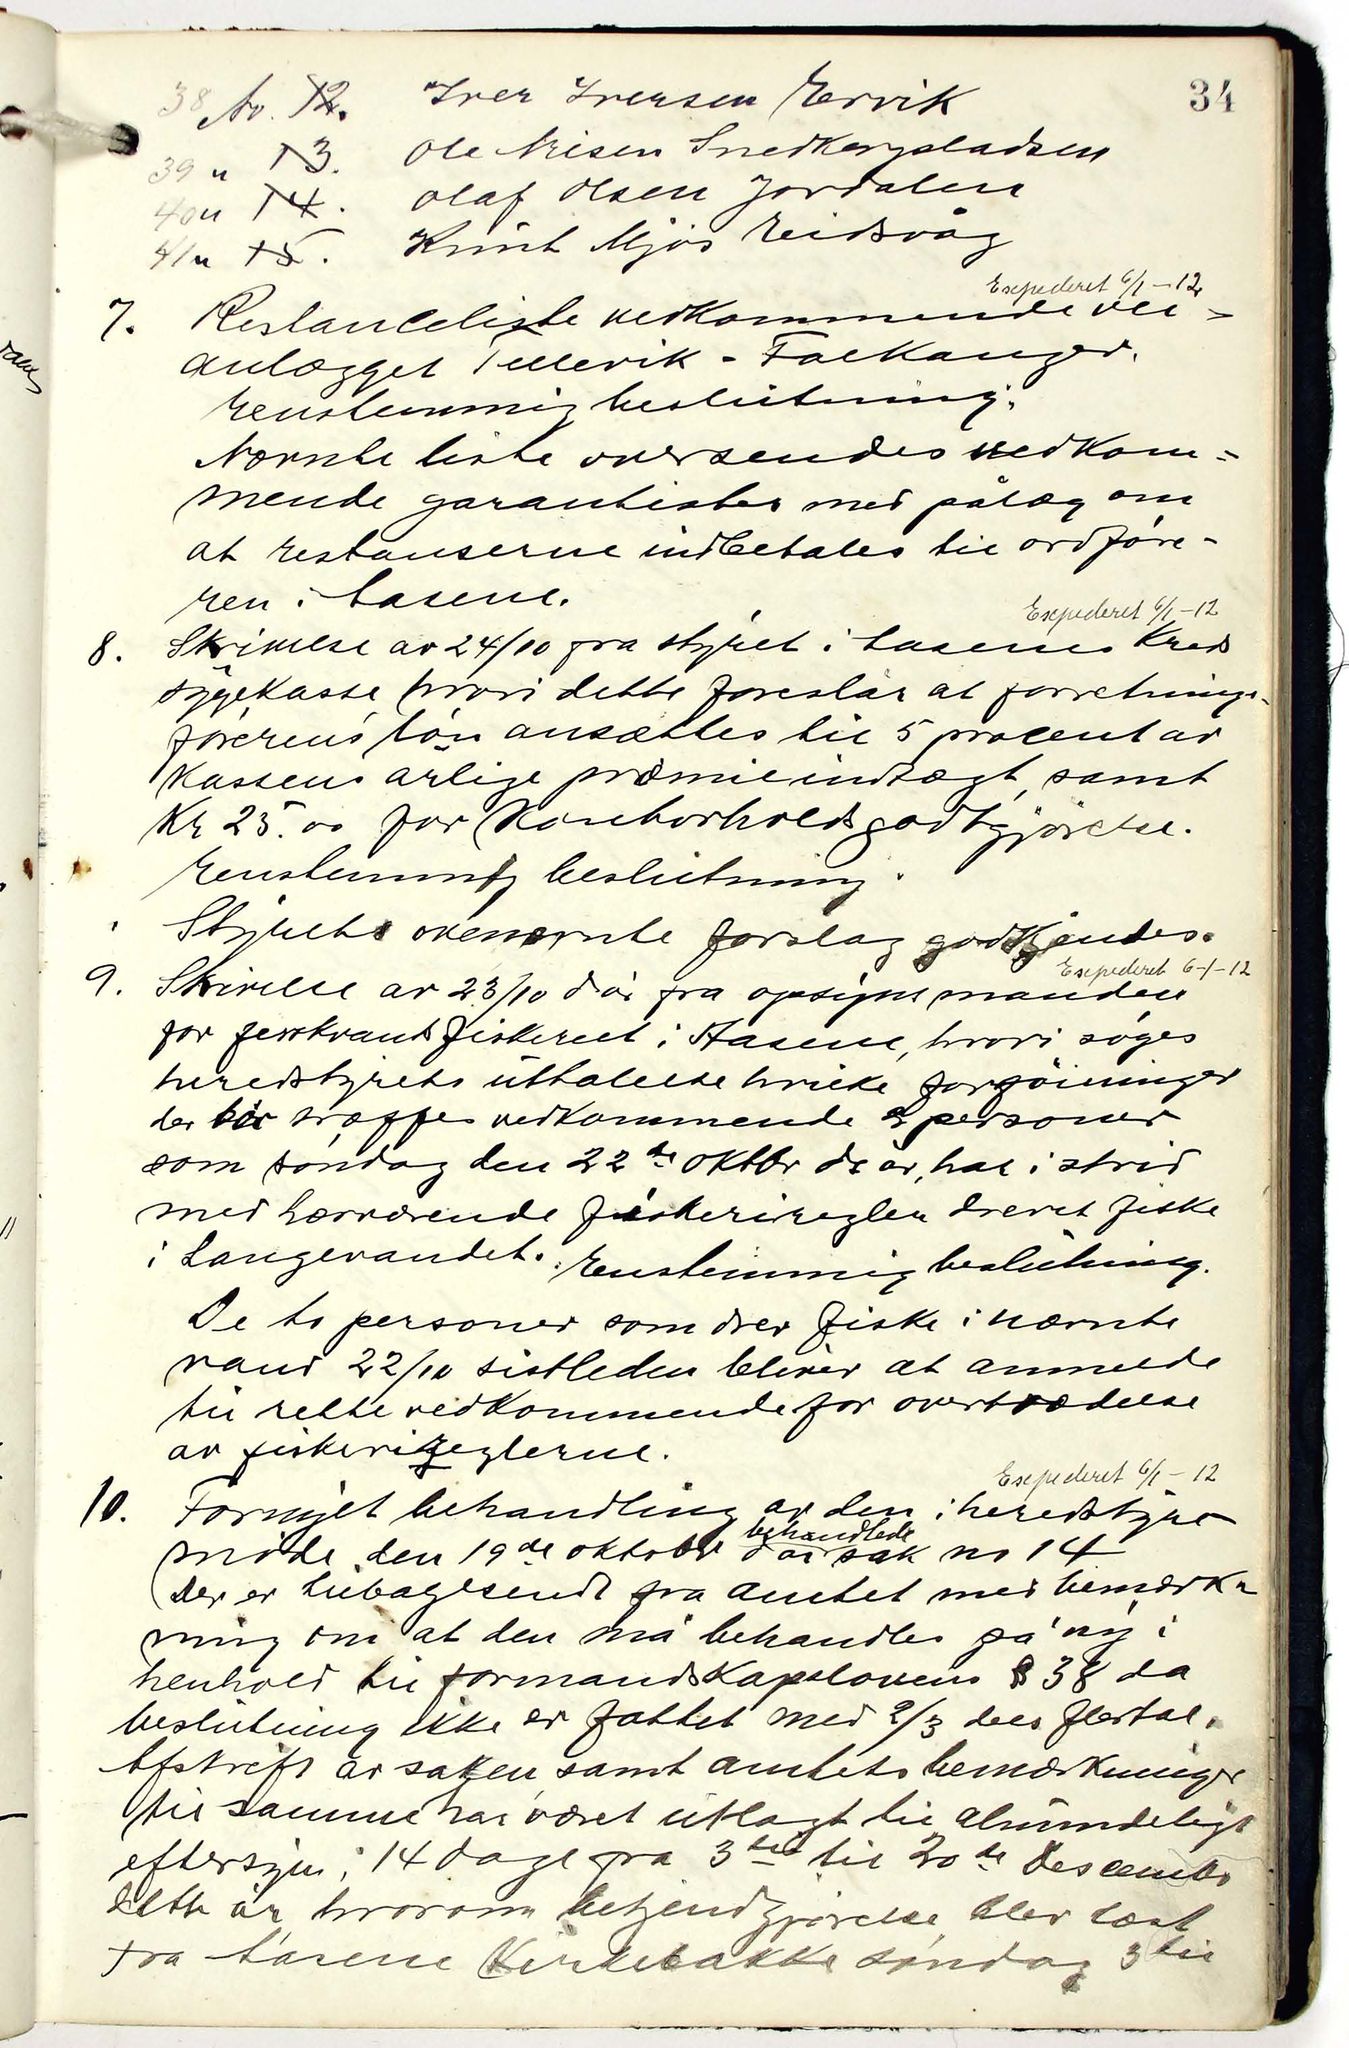 34
38 No. 12. Iver Iversen Eervik
39 " 13. Ole Nilsen Snedkerpladsen
40 " 14. Olaf Olsen Jordalen
41 " 15. Knut Mjøs Eidsvåg
Expederet 6/1-12
7. Restanceliste vedkommende vei-
anlægget Tellevik - Falkanger.
Eenstemmig beslutning.
Nævnte liste oversendes vedkom-
mende garantister med pålæg om
at restanserne indbetales til ordføre-
ren i Åsene.
Expederet 6/1-12
8. Skrivelse av 24/10 fra styret i Åsenes Kreds
sygekasse hvori dette foreslår at forretnings-
førerens løn ansættes til 5 procent av
kassens årlige præmieindtægt, samt
Kr 25.00 for Kontorholdsgodtgjørelse.
Eenstemmig beslutning.
Styrets ovennævnte forslag godkjendes.
Expederet 6-1-12
9. Skrivelse av 23/10 d år fra opsynsmanden
for ferskvandsfiskeriet i Åsene, hvori søges
heredstyrets uttalelse hvilke forføininger
der bør træffes vedkommende 2 personer
som søndag den 22de oktbr ds år, har i strid
med herværende fiskeriregler drevet fiske
i Langevandet. Eenstemmig beslutning.
De to personer som drev fiske i nævnte
vand 22/10 sistleden bliver at anmelde
til rette vedkommende for overtrædelse
av fiskerireglerne.
Expederet 6/1-12
10. Fornyet behandling av den i heredstyre
møde den 19de oktober d år behandlede sak no 14
der er tilbagesendt fra amtet med bemærk-
ning om at den må behandles på ny i
henhold til formandskapslovens § 38 da
beslutning ikke er fattet med 2/3 dels flertal.
Afskrift av saken samt amtets bemærkninger
til samme har været utlagt til almindeligt
eftersyn i 14 dage fra 3die til 20de Descembr
dette år, hvorom bekjendtgjørelse blev læst
fra Åsene Kirkebakke søndag 3die